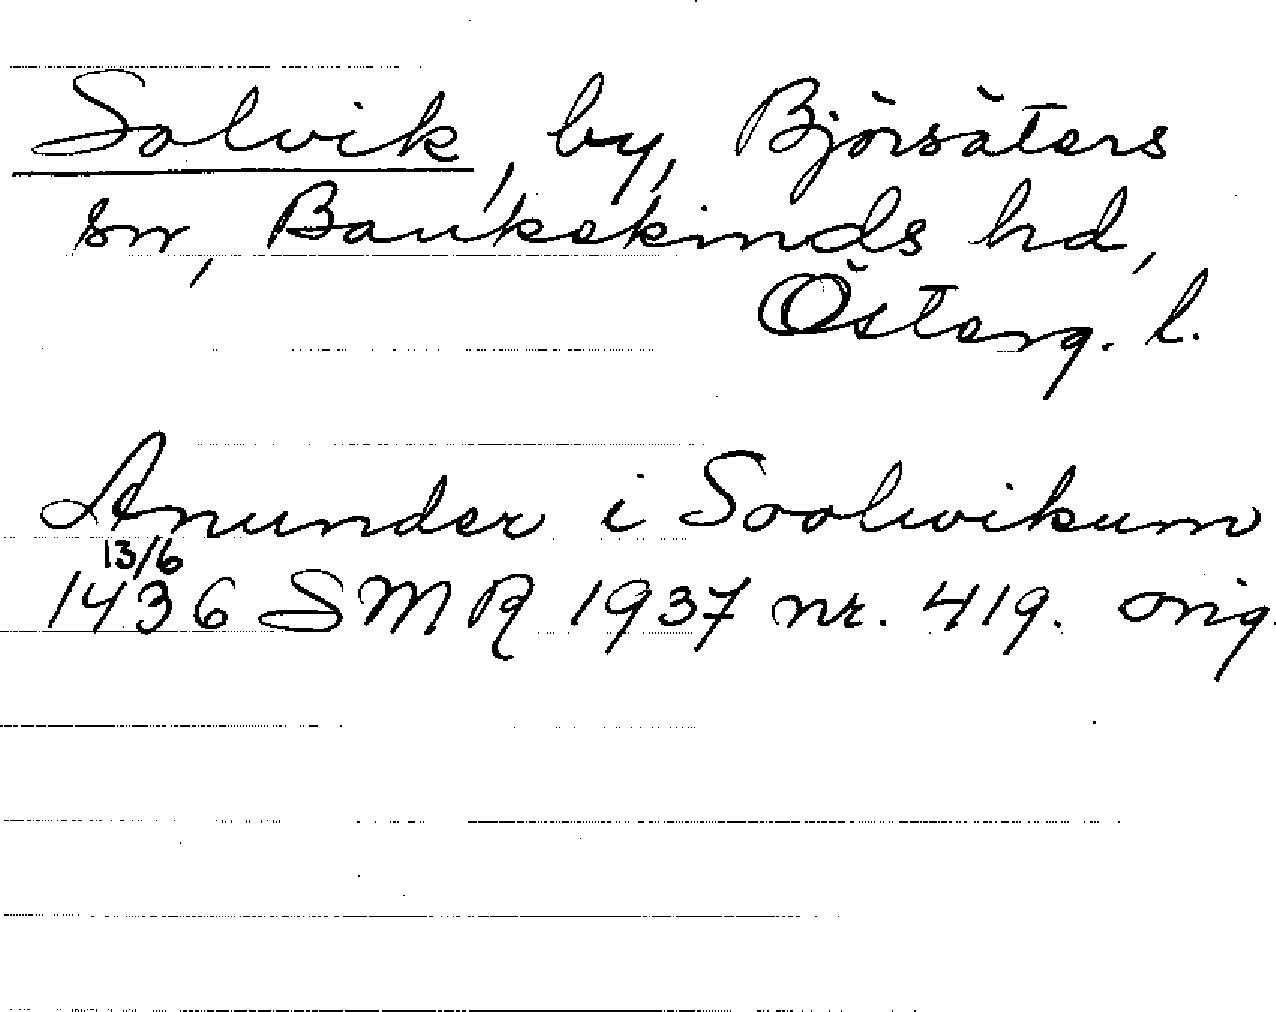 Solvik, by, Björsäters
sn, Bankekinds hd,
Österg. l.
Anunder i Soolwikum
13/6
1436 SMR 1937 nr. 419. orig.